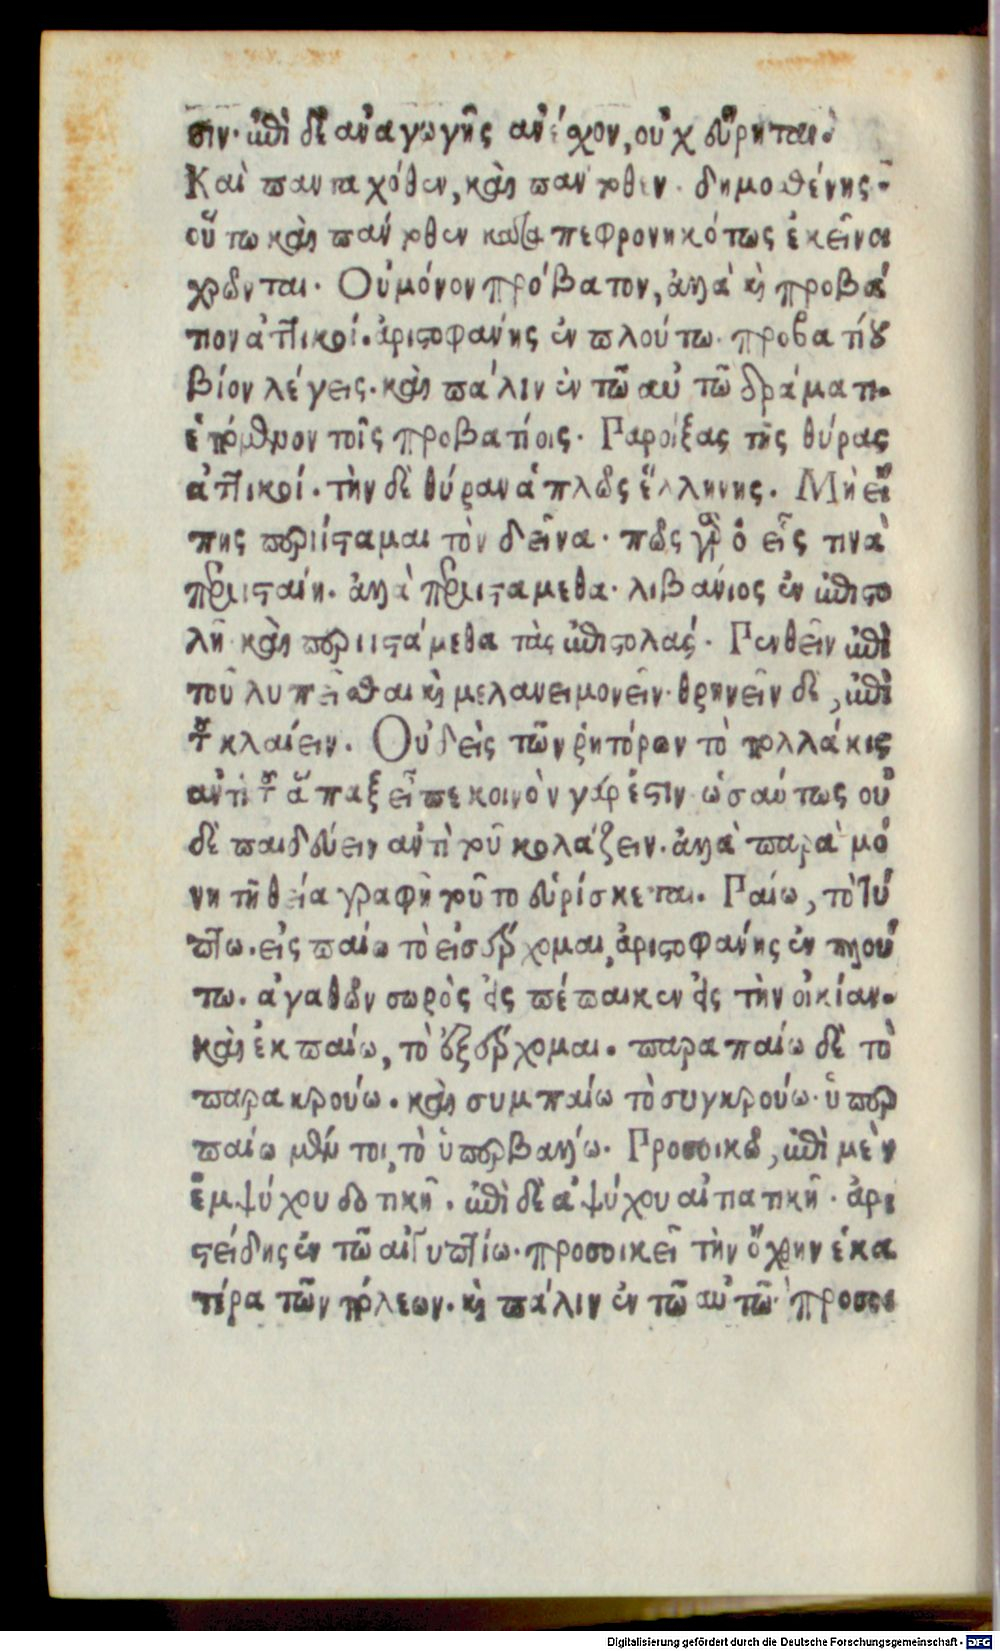 σιν· ἐπὶ δὲ ἀναγωγῆς ἀνέχον, οὐχ εὕρηται·
Καὶ πανταχόθεν, καὶ πάντοθεν· δημοσθένης·
οὕτω καὶ πάντοθεν καταπεφρονηκότως ἐκεῖνοι
χρῶνται· Οὐ μόνον πρόβατον, ἀλλὰ καὶ προβά
τιον ἀττικοί· ἀριστοφάνης ἐν πλούτω· προβατίου
βίον λέγεις· καὶ πάλιν ἐν τῶ αὐτῶ δράματι·
ἑπόμενον τοῖς προβατίοις· Παροίξας τῆς θύρας
ἀττικοί· τὴν δὲ θύραν ἁπλῶς ἕλληνες· Μὴ εἴ
πης περιίσταμαι τὸν δεῖνα· πῶς γὰρ ὁ εἷς τινὰ
περισταίη· ἀλλὰ περιιστάμεθα· λιβάνιος ἐν ἐπιστο
λῆ· καὶ περιιστάμεθα τὰς ἐπιστολάς· Πενθεῖν ἐπὶ
τοῦ λυπεῖσθαι καὶ μελανειμονεῖν· θρηνεῖν δὲ, ἐπὶ
τοῦ κλαίειν· Οὐδεὶς τῶν ῥητόρων τὸ πολλάκις
ἀντὶ τοῦ ἅπαξ εἶπε κοινὸν γάρ ἐστιν ὡσαύτως οὐ
δὲ παιδεύειν ἀντὶ τοῦ κολάζειν· ἀλλὰ παρὰ μό
νη τῆ θεία γραφῆ τοῦτο εὑρίσκεται· Παίω, τὸ τύ
πτω· εἰς παίω τὸ εἰσέρχομαι, ἀριστοφάνης ἐν πλού
τω· ἀγαθῶν σωρὸς εἰς πέπαικεν εἰς τὴν οἰκίαν·
καὶ ἐκπαίω, τὸ ἐξέρχομαι· παραπαίω δὲ τὸ
παρακρούω· καὶ συμπαίω τὸ συγκρούω· ὑπερ
παίω μέν τοι, τὸ ὑπερβάλλω· Προσοικῶ, ἐπὶ μὲν
ἐμψύχου δοτικῆ· ἐπὶ δὲ ἀψύχου αἰτιατικῆ· ἀρι
στείδης ἐν τῶ αἰγυπτίω· προσοικεῖ τὴν ὄχθην ἑκα
τέρα τῶν πόλεων· καὶ πάλιν ἐν τῶ αὐτῶ· προσοι
Digitalisierung gefördert durch die Deutsche Forschungsgemeinschaft - DFG